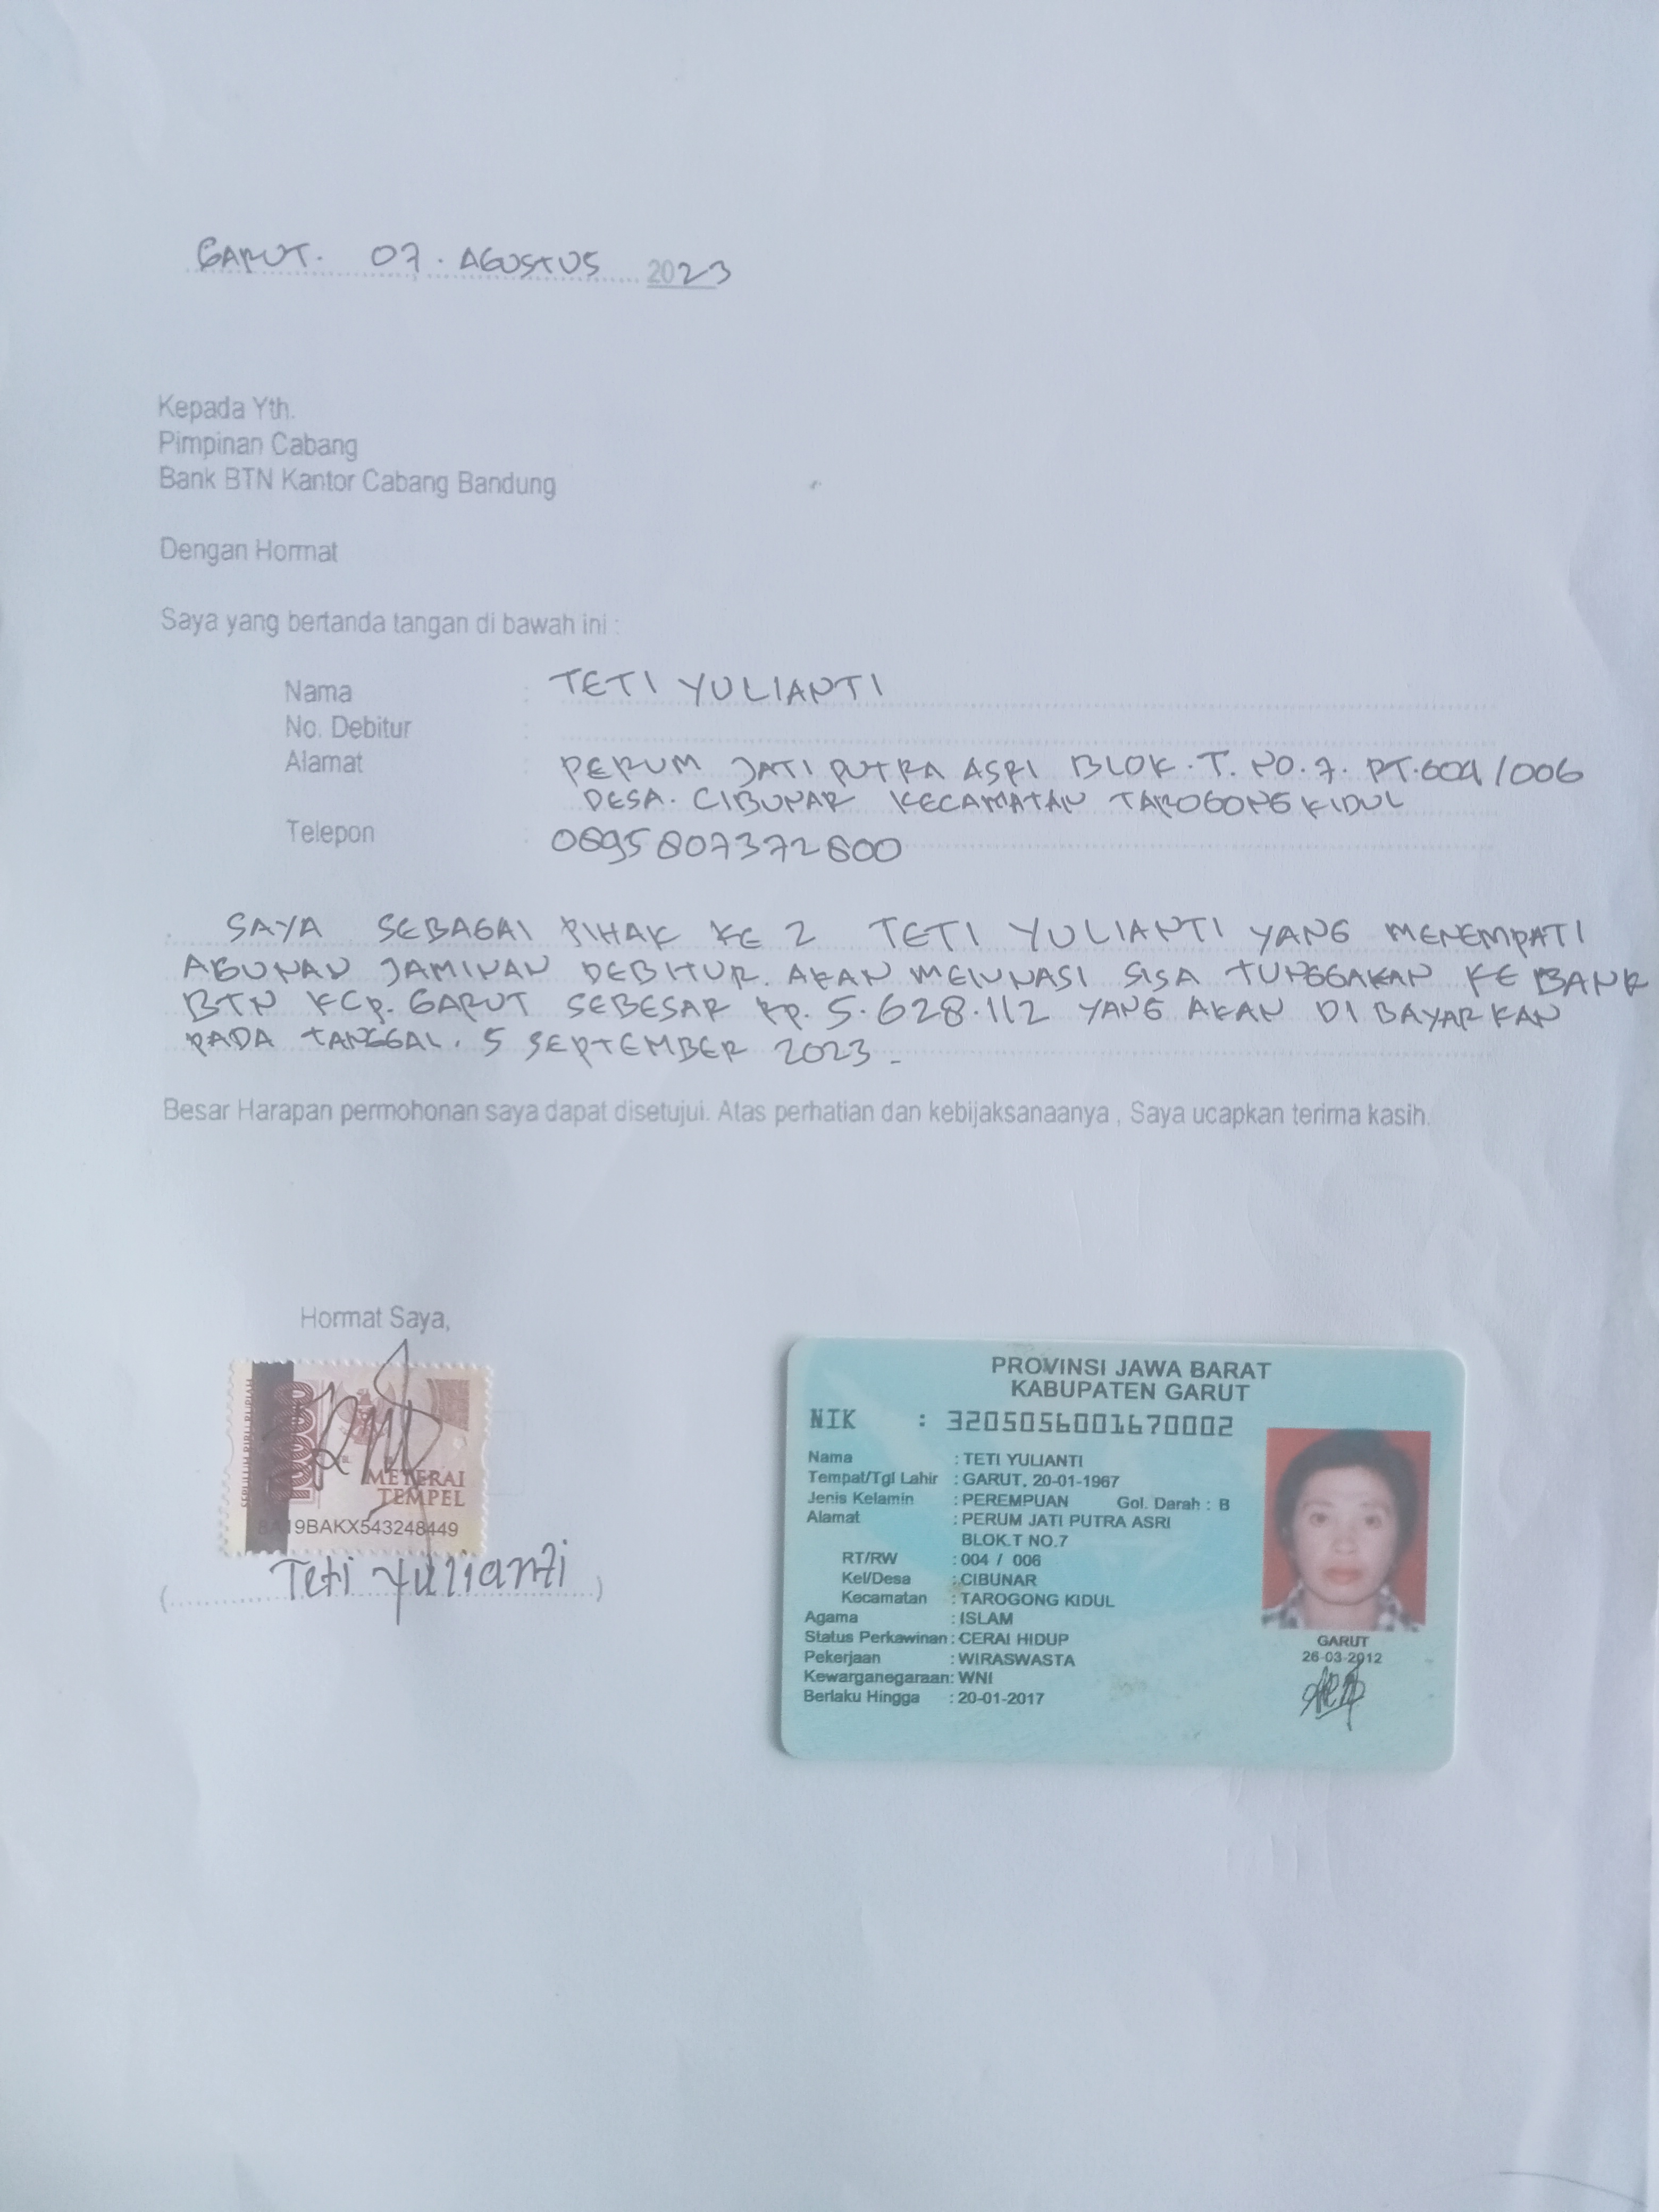 GARUT. 07. AGUSTUS 2023
Kepada Yth.
Pimpinan Cabang
Bank BTN Kantor Cabang Bandung
Dengan Hormat
Saya yang bertanda tangan di bawah ini :
Nama : TETI YULIANTI
No. Debitur :
Alamat : PERUM JATI PUTRA ASRI BLOK. T. NO. 7. RT. 004/006
DESA. CIBUNAR KECAMATAN TAROGONG KIDUL
Telepon : 0895807372800
SAYA SEBAGAI PIHAK KE 2 TETI YULIANTI YANG MENEMPATI
AGUNAN JAMINAN DEBITUR. AKAN MELUNASI SISA TUNGGAKAN KE BANK
BTN KCP. GARUT SEBESAR RP. 5.628.112 YANG AKAN DI BAYARKAN
PADA TANGGAL. 5 SEPTEMBER 2023 -
Besar Harapan permohonan saya dapat disetujui. Atas perhatian dan kebijaksanaanya , Saya ucapkan terima kasih.
Hormat Saya,
10000
METERAI
TEMPEL
9BAKX543248449
(Teti Yulianti)
PROVINSI JAWA BARAT
KABUPATEN GARUT
NIK : 3205056001670002
Nama : TETI YULIANTI
Tempat/Tgl Lahir : GARUT, 20-01-1967
Jenis Kelamin : PEREMPUAN Gol. Darah : B
Alamat : PERUM JATI PUTRA ASRI
BLOK.T NO.7
RT/RW : 004 / 006
Kel/Desa : CIBUNAR
Kecamatan : TAROGONG KIDUL
Agama : ISLAM
Status Perkawinan : CERAI HIDUP
Pekerjaan : WIRASWASTA
Kewarganegaraan : WNI
Berlaku Hingga : 20-01-2017
GARUT
26-03-2012